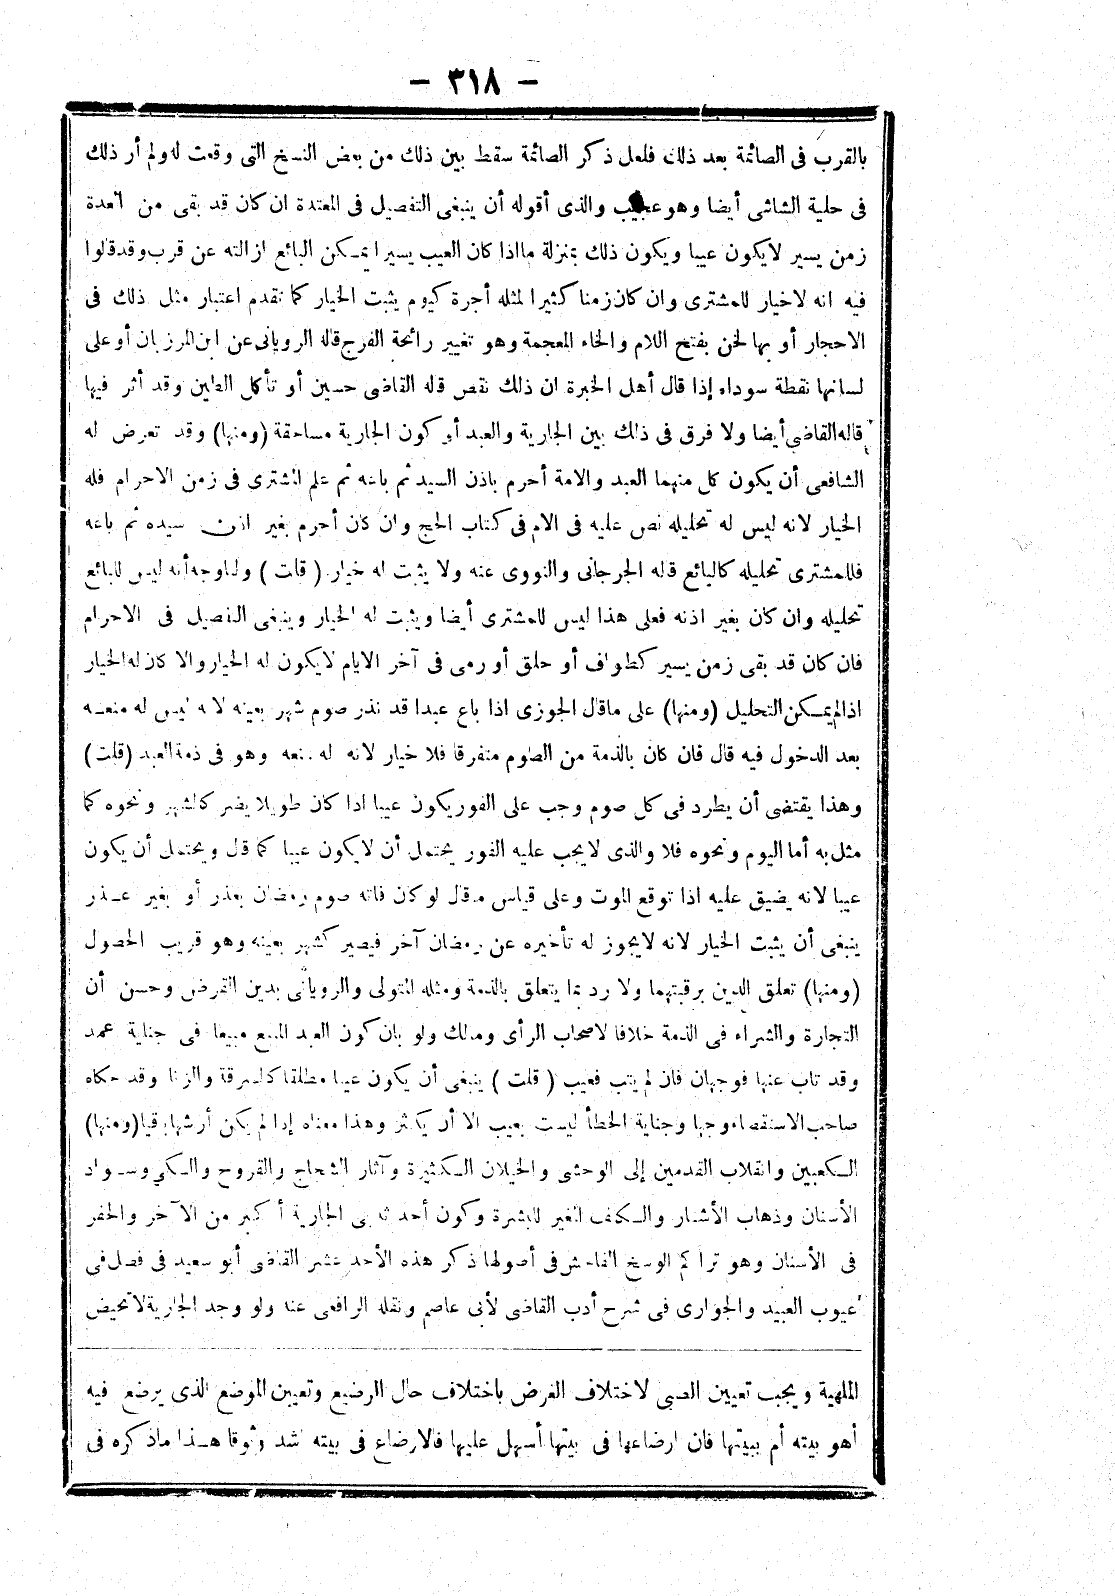 — ٣١٨ —
بالقرب فى الصائمة بعد ذلك فلعل ذكر الصائمة سقط بين ذلك من بعض النسخ التى وقعت له ولم أر ذلك
فى حلية الشاشى أيضا وهو عجيب والذى أقوله أن ينبغى التفصيل فى المعتدة ان كان قد بقى من العدة
زمن يسير لايكون عيبا ويكون ذلك بمنزلة مااذا كان العيب يسيرا يمكن البائع ازالته عن قرب وقد قالوا
فيه انه لاخيار للمشترى وان كان زمنا كثيرا لمثله أجرة كيوم يثبت الخيار كما تقدم اعتبار مثل ذلك فى
الاحجار أو بها لخن بفتح اللام والخاء المعجمة وهو تغيير رائحة الفرج قاله الرويانى عن ابن المرزبان أو على
لسانها نقطة سوداء إذا قال أهل الخبرة ان ذلك نقص قله القاضى حسين أو تأكل الطين وقد أثر فيها
قاله القاضى أيضا ولا فرق فى ذلك بين الجارية والعبد أو كون الجارية مساحقة (ومنها) وقد تعرض له
الشافعى أن يكون كل منهما العبد والامة أحرم باذن السيد ثم باعه ثم علم المشترى فى زمن الاحرام فله
الخيار لانه ليس له تحليله نص عليه فى الام فى كتاب الحج وان كان أحرم بغير اذن سيده ثم باعه
فللمشترى تحليله كالبائع قاله الجرجانى والنووى عنه ولا يثبت له خيار (قلت) ولنا وجه أنه ليس للبائع
تحليله وان كان بغير اذنه فعلى هذا ليس للمشترى أيضا ويثبت له الخيار وينبغى التفصيل فى الاحرام
فان كان قد بقى زمن يسير كطواف أو حلق أو رمى فى آخر الايام لايكون له الخيار والا كان له الخيار
اذا لم يمكن التحليل (ومنها) على ماقال الجوزى اذا باع عبدا قد نذر صوم شهر بعينه لانه ليس له منعه
بعد الدخول فيه قال فان كان بالذمة من الصوم متفرقا فلا خيار لانه له منعه وهو فى ذمة العبد (قلت)
وهذا يقتضى أن يطرد فى كل صوم وجب على الفور يكون عيبا اذا كان طويلا يضر كالشهر ونحوه كما
مثل به أما اليوم ونحوه فلا والذى لايجب عليه الفور يحتمل أن لايكون عيبا كما قال ويحتمل أن يكون
عيبا لانه يضيق عليه اذا توقع الموت وعلى قياس ماقال لو كان فاته صوم رمضان بعذر أو بغير عذر
ينبغى أن يثبت الخيار لانه لايجوز له تأخيره عن رمضان آخر فيصير كشهر بعينه وهو قريب الحصول
(ومنها) تعلق الدين برقبتهما ولا رد بما يتعلق بالذمة ومثله المتولى والرويانى بدين القرض وحسن أن
التجارة والشراء فى الذمة خلافا لاصحاب الرأى ومالك ولو بان كون العبد المبيع مبيعا فى جناية عمد
وقد تاب عنها فوجهان فان لم يتب فعيب (قلت) ينبغى أن يكون عيبا مطلقا كالسرقة والزنا وقد حكاه
صاحب الاستقصاء وجها وجناية الخطأ ليست بعيب الا أن يكثر وهذا معناه إذا لم يكن أرشها باقيا (ومنها)
الكعبين وانقلاب القدمين إلى الوحشى والخيلان الكثيرة وآثار الشجاج والقروح والكي وسواد
الأسنان وذهاب الأشفار والكلف المغير للبشرة وكون أحد ثديى الجارية أكبر من الآخر والحفر
فى الأسنان وهو تراكم الوسخ الفاحش فى أصولها ذكر هذه الأحد عشر القاضى أبو سعيد فى فصل فى
عيوب العبيد والجوارى فى شرح أدب القاضى لأبى عاصم ونقله الرافعى عنه ولو وجد الجارية لاتحيض
الملهية ويجب تعيين الصبى لاختلاف الغرض باختلاف حال الرضيع وتعيين الموضع الذى يرضع فيه
أهو بيته أم بيتها فان ارضاعها فى بيتها أسهل عليها فالارضاع فى بيته أشد وثوقا هذا ماذكره فى